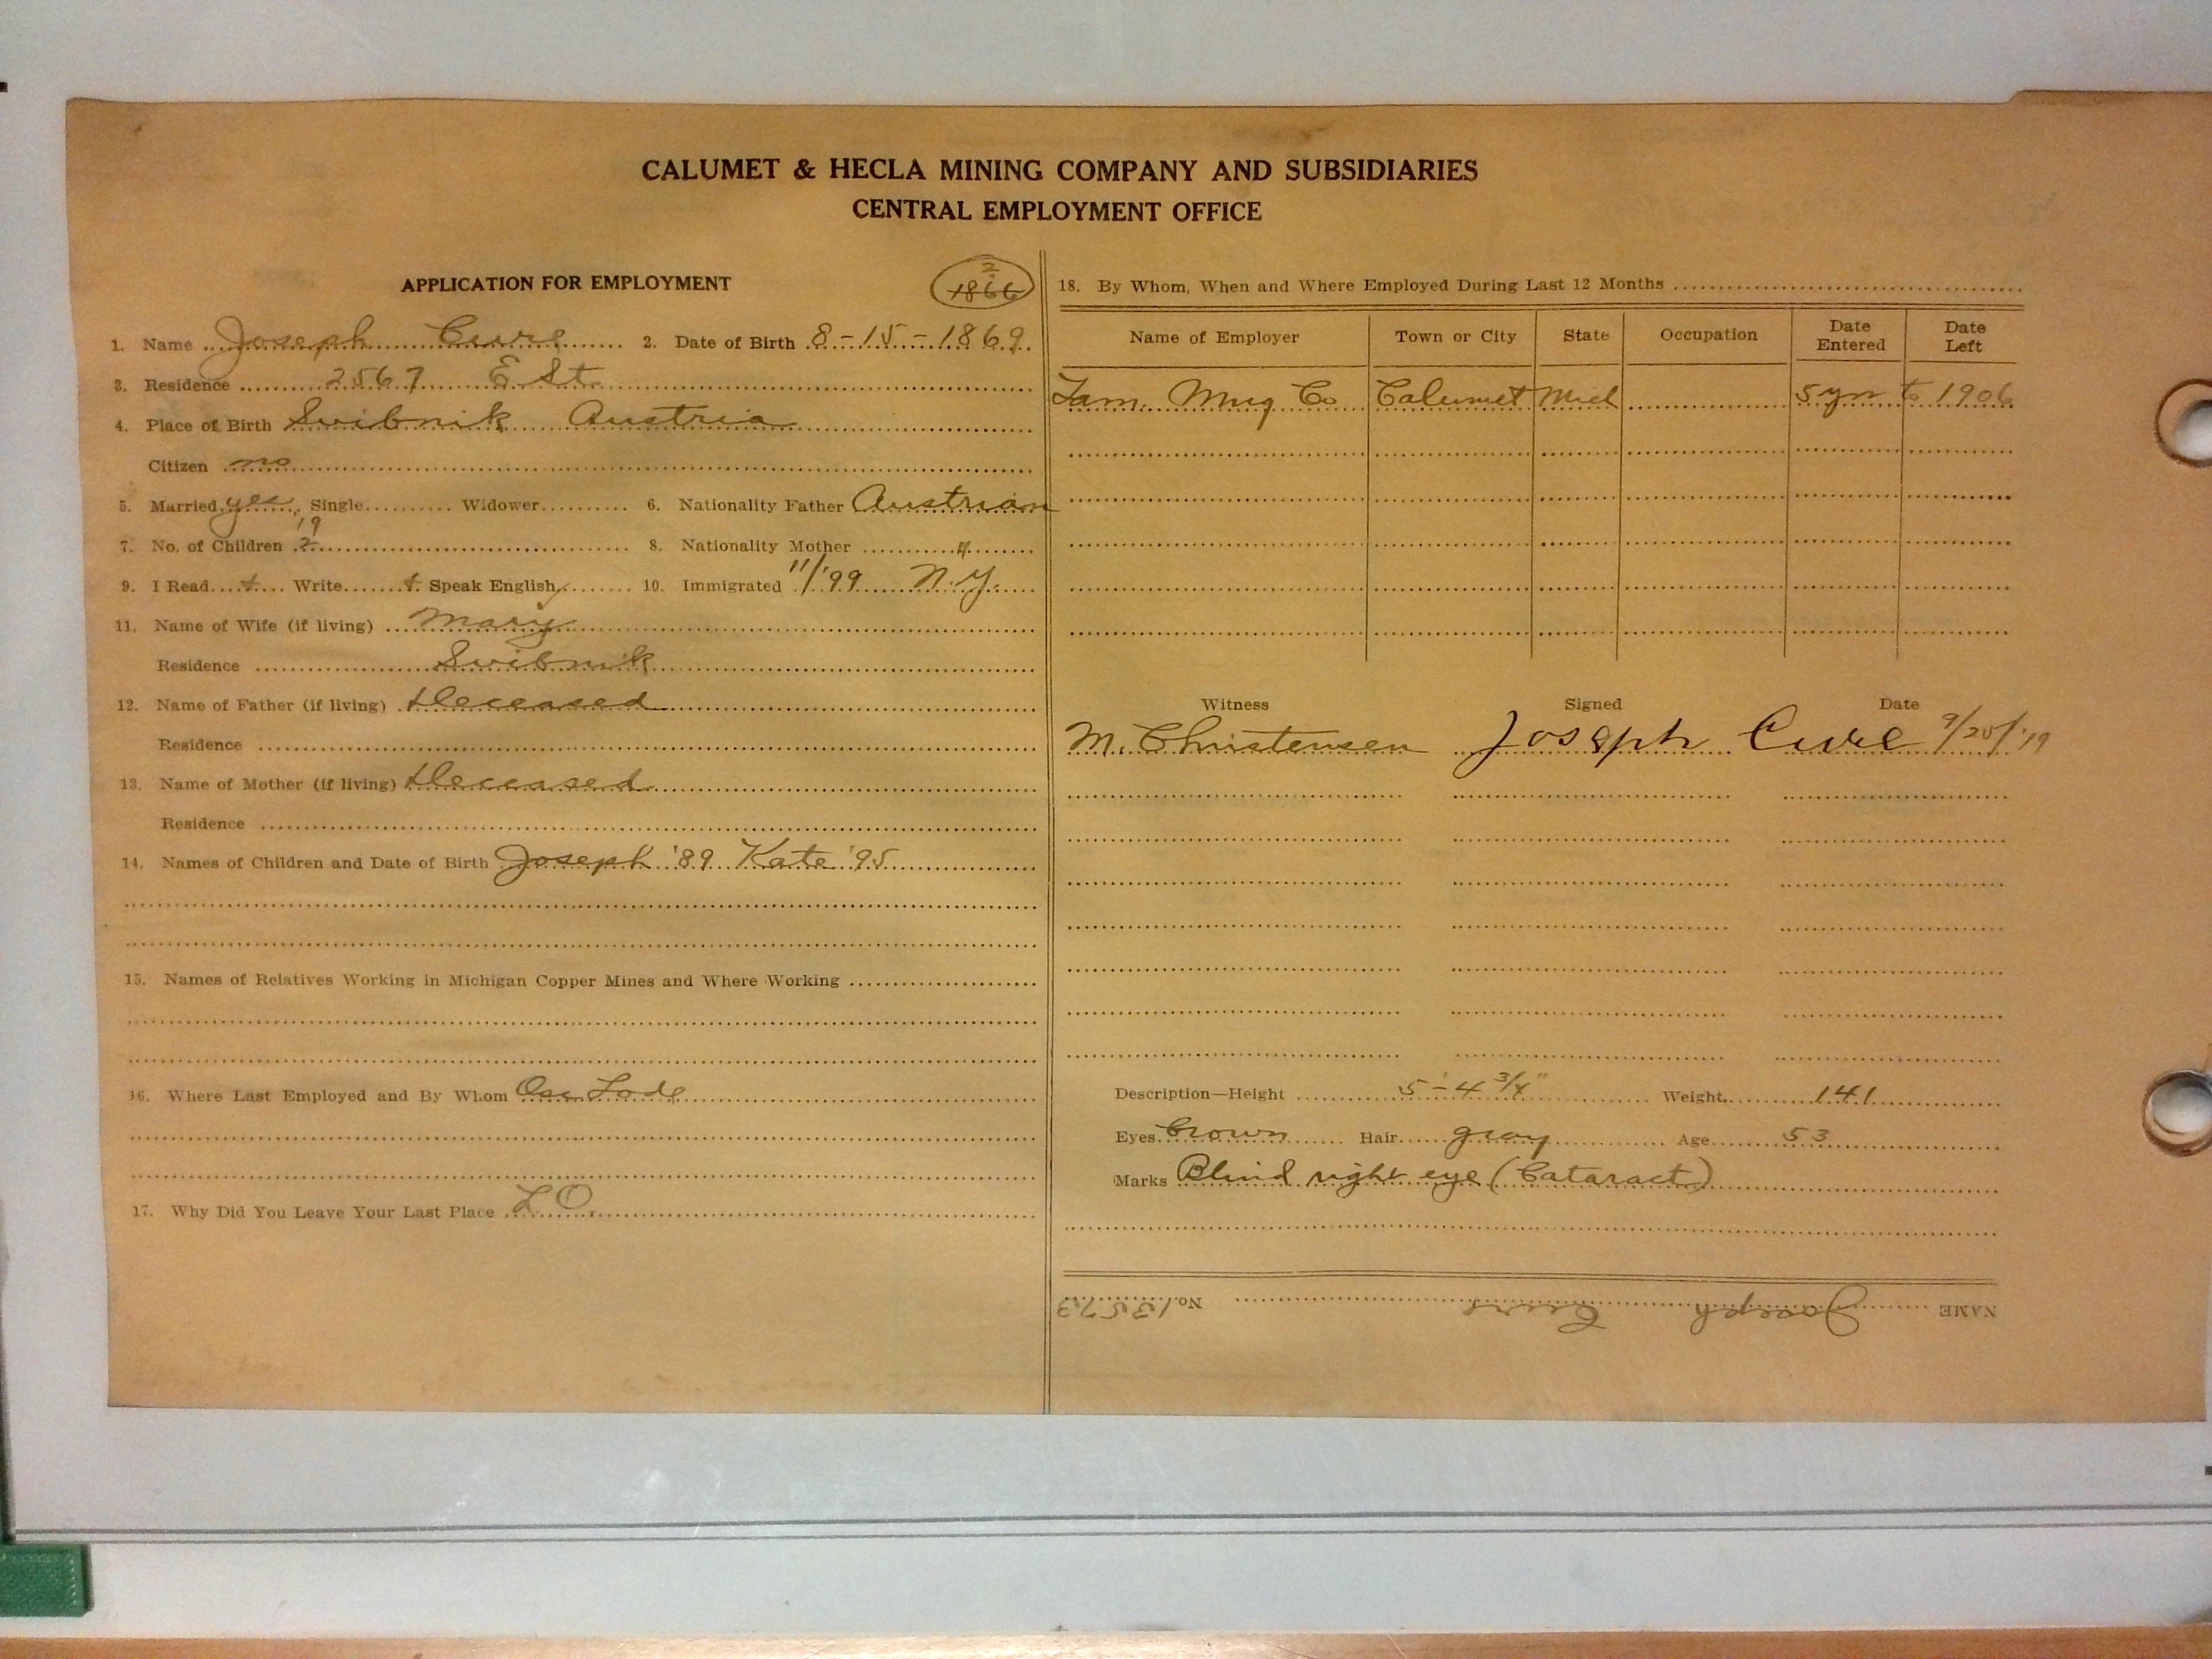 CALUMET & HECLA MINING COMPANY AND SUBSIDIARIES
CENTRAL EMPLOYMENT OFFICE
APPLICATION FOR EMPLOYMENT
2
1866
1. Name Joseph 2. Date of Birth 8-15-1869
3. Residence 2567 E St.
4. Place of Birth Svibnik Austria
Citizen no
5. Married yes Single Widower 6. Nationality Father Austrian
7. No. of Children 2 8. Nationality Mother "
9. I Read Write Speak English 10. Immigrated 11/'99 N.Y.
11. Name of Wife (if living) Mary
Residence Svibnik
12. Name of Father (if living) Deceased
Residence
13. Name of Mother (if living) Deceased
Residence
14. Names of Children and Date of Birth Joseph '89 Kate '95
15. Names of Relatives Working in Michigan Copper Mines and Where Working
16. Where Last Employed and By Whom Osc Lode
17. Why Did You Leave Your Last Place L.O.
18. By Whom, When and Where Employed During Last 12 Months
Name of Employer Town or City State Occupation Date Entered Date Left
Tam. Mng Co Calumet Mich 5 yrs to 1906
Witness Signed Date
M. Christensen Joseph 9/20/'19
Description—Height 5'-4 3/4" Weight 141
Eyes brown Hair gray Age 53
Marks Blind right eye (Cataract)
NAME Joseph No. 13573